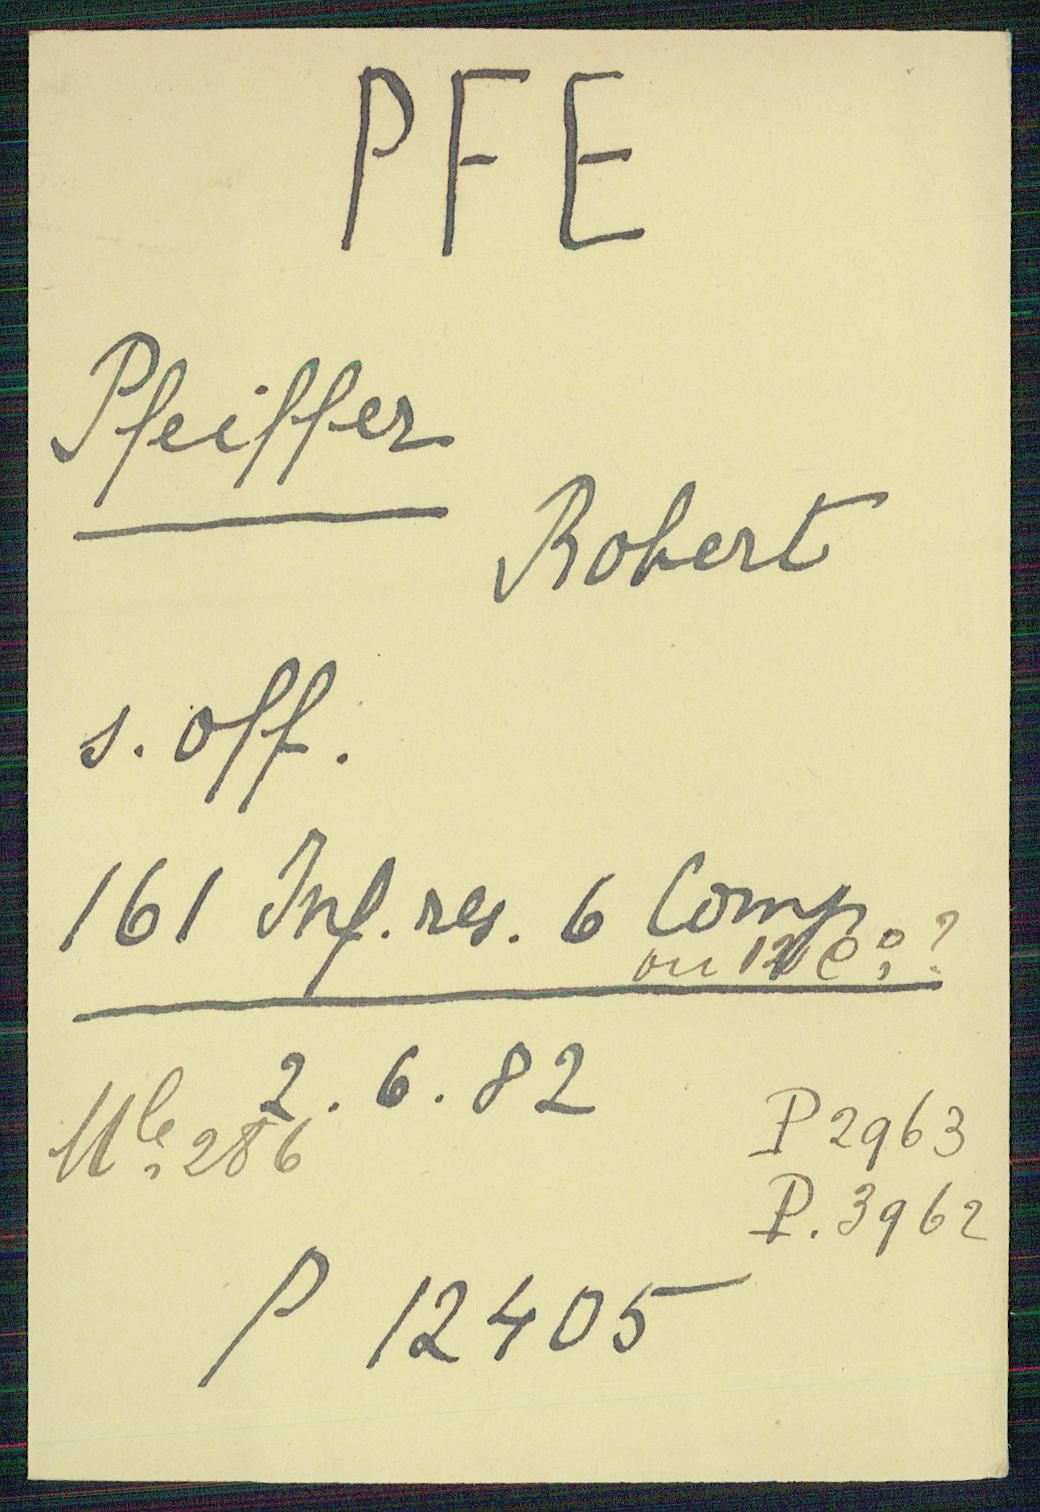 PFE
Pfeiffer
Robert
s. off.
161 Inf. res. 6 Comp
ou 12e C° ?
2. 6. 82
Mle 286
P 2963
P. 3962
P 12405